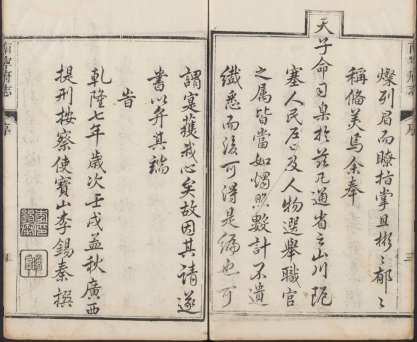 燦列眉而瞭指掌且彬彬郁郁
稱偹美焉余奉
天子命司臬於茲凡通省之山川阨
塞人民
及人物選舉職官
之属皆當如燭照數計不遺
纖悉而後可得是編也可
謂寔獲我心矣故因其請遂
書以弁其端
旹
乾隆七年歲次壬戌孟秋廣西
提刑按察使寶山李錫秦撰
南寧府志
序